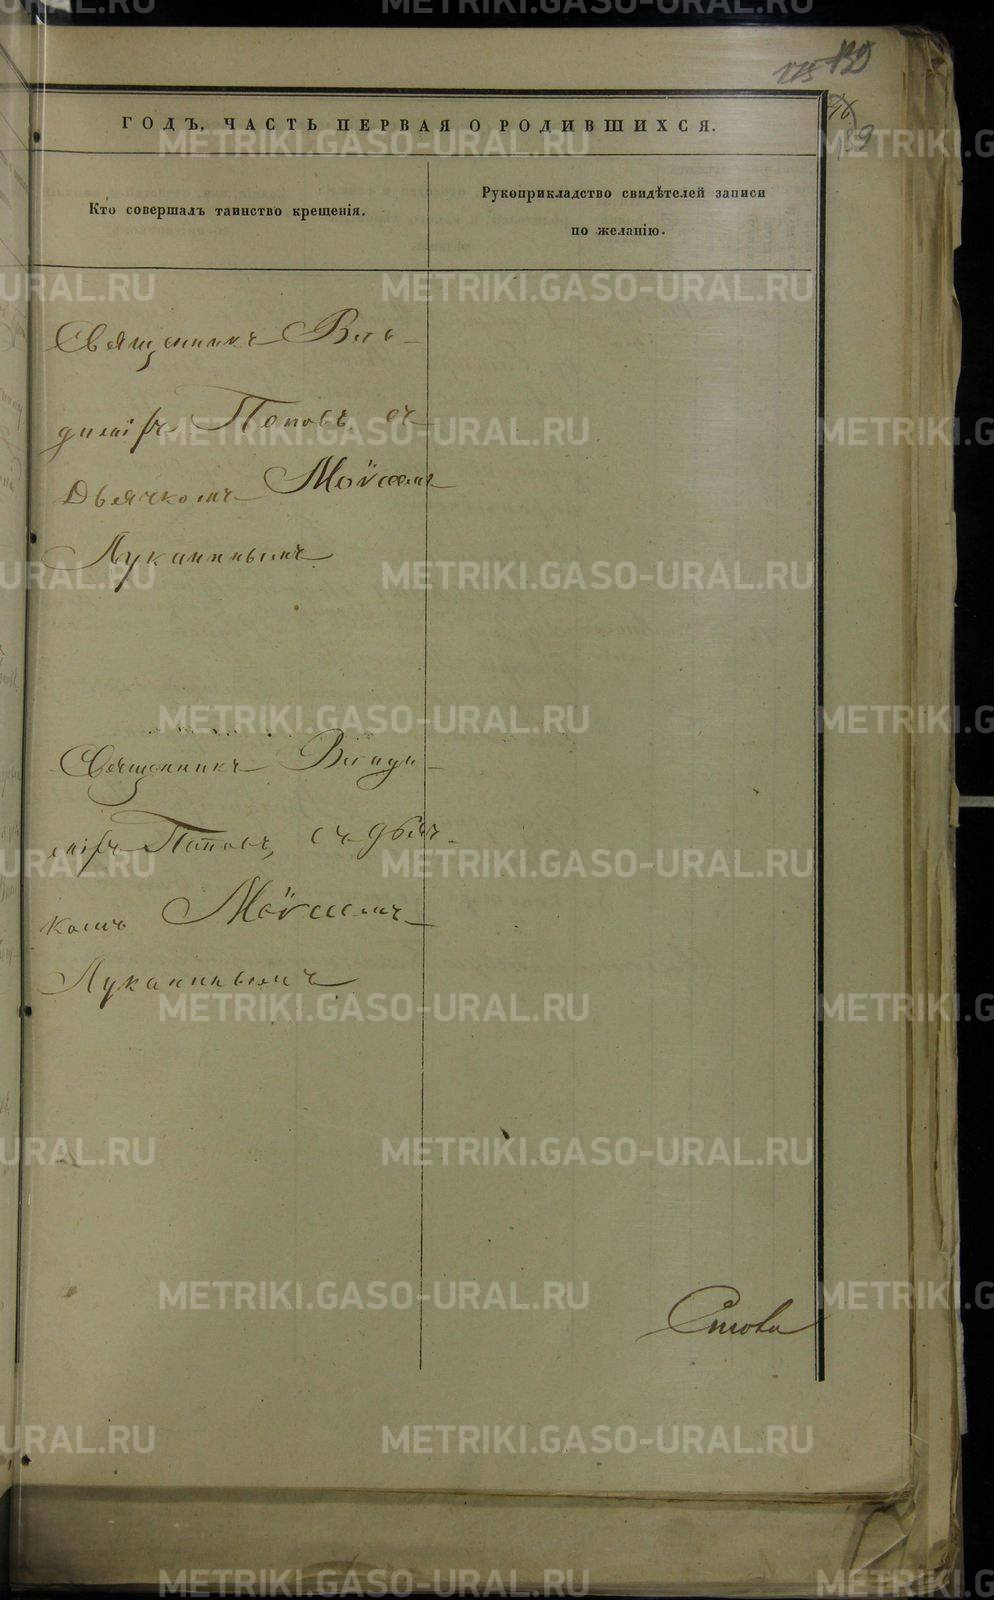 175 139
ГОДЪ, ЧАСТЬ ПЕРВАЯ О РОДИВШИХСЯ.
Кто совершалъ таинство крещенія.
Рукоприкладство свидѣтелей записи
по желанію.
Священникъ Вла-
диміръ Поповъ, съ
Дьячкомъ Моѵсеемъ
Луканинымъ.
Священникъ Влади-
міръ Поповъ, съ дьяч-
комъ Моѵсеемъ
Луканинымъ.
METRIKI.GASO-URAL.RU